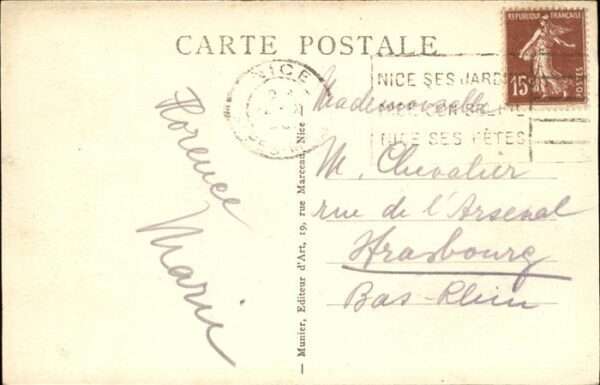 CARTE POSTALE
REPUBLIQUE FRANÇAISE
15c
POSTES
NICE
NICE SES JARDINS
NICE SES FÊTES
Florence
Marie
Munier, Editeur d'Art, 19, rue Marceau, Nice
Mademoiselle
M. Chevalier
rue de l'Arsenal
Strasbourg
Bas-Rhin